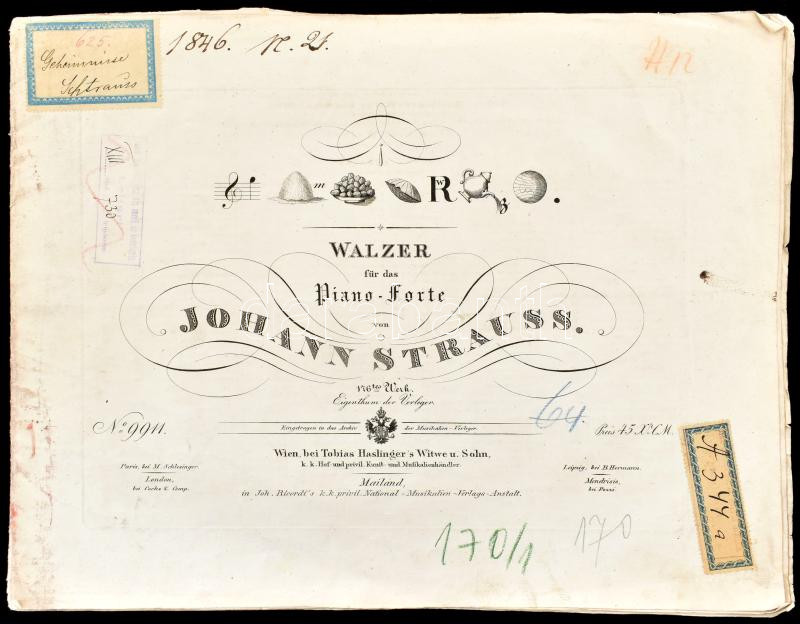 625.
Geheimnisse
Schtrauss
1846. N. 21.
H 12
XIII
730
m R W z.
WALZER
für das
Piano-Forte
von
JOHANN STRAUSS.
176tes Werk.
Eigenthum der Verleger.
64.
No 9911.
Eingetragen in das Archiv der Musikalien-Verleger.
Preis 45 Xr C.M.
Wien, bei Tobias Haslinger's Witwe u. Sohn,
k. k. Hof- und privil. Kunst- und Musikalienhändler.
Paris, bei M. Schlesinger.
London,
bei Cocks & Comp.
Leipzig, bei B. Hermann.
Mendrisio,
bei Pozzi.
Mailand,
in Joh. Ricordi's k.k. privil. National-Musikalien-Verlags-Anstalt.
A 344 a
170/1
170